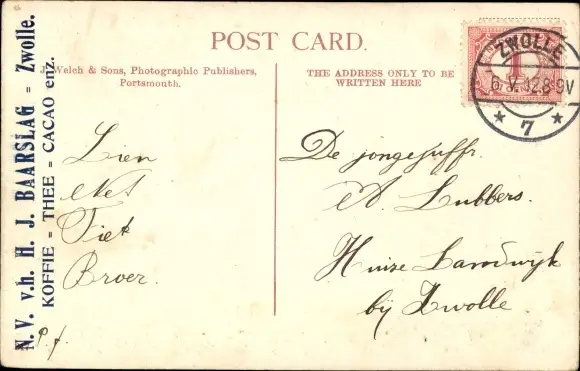 N.V. v.h. H. J. BAARSLAG = Zwolle.
KOFFIE = THEE = CACAO enz.
POST CARD.
J. Welch & Sons, Photographic Publishers,
Portsmouth.
THE ADDRESS ONLY TO BE
WRITTEN HERE
ZWOLLE
6.V.12.8-9V
* 7 *
1
Lien
Net
Tiek
Broer.
p.f.
De jongejuffr.
A. Lubbers.
Huize Landwijk
bij Zwolle